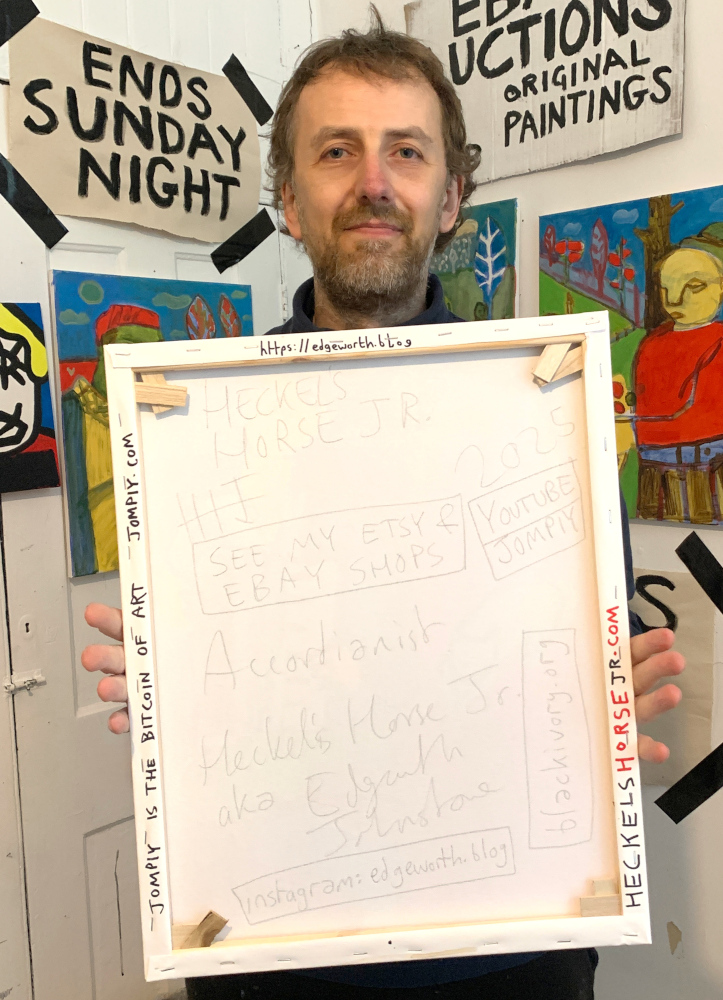 ENDS
SUNDAY
NIGHT
UCTIONS
ORIGINAL
PAINTINGS
https://edgeworth.blog
HECKEL'S
HORSE JR.
2025
SEE MY ETSY &
EBAY SHOPS
YOUTUBE
JOMPIY
Accordianist
Heckel's Horse Jr.
aka Edgeworth
Johnstone
blackivory.org
instagram: edgeworth.blog
JOMPIY IS THE BITCOIN OF ART JOMPIY.COM
HECKELSHORSEJR.COM